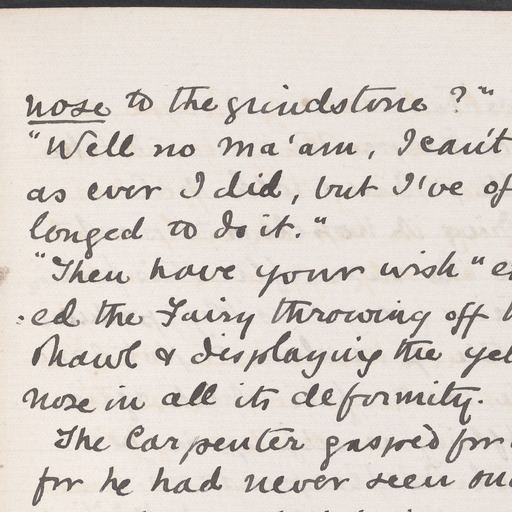 nose to the grindstone?"
"Well no ma'am, I can't
as ever I did, but I've of
longed to do it."
"Then have your wish"
:ed the Fairy throwing off
shawl & displaying the yel
nose in all its deformity.
The Carpenter gasped for
for he had never seen